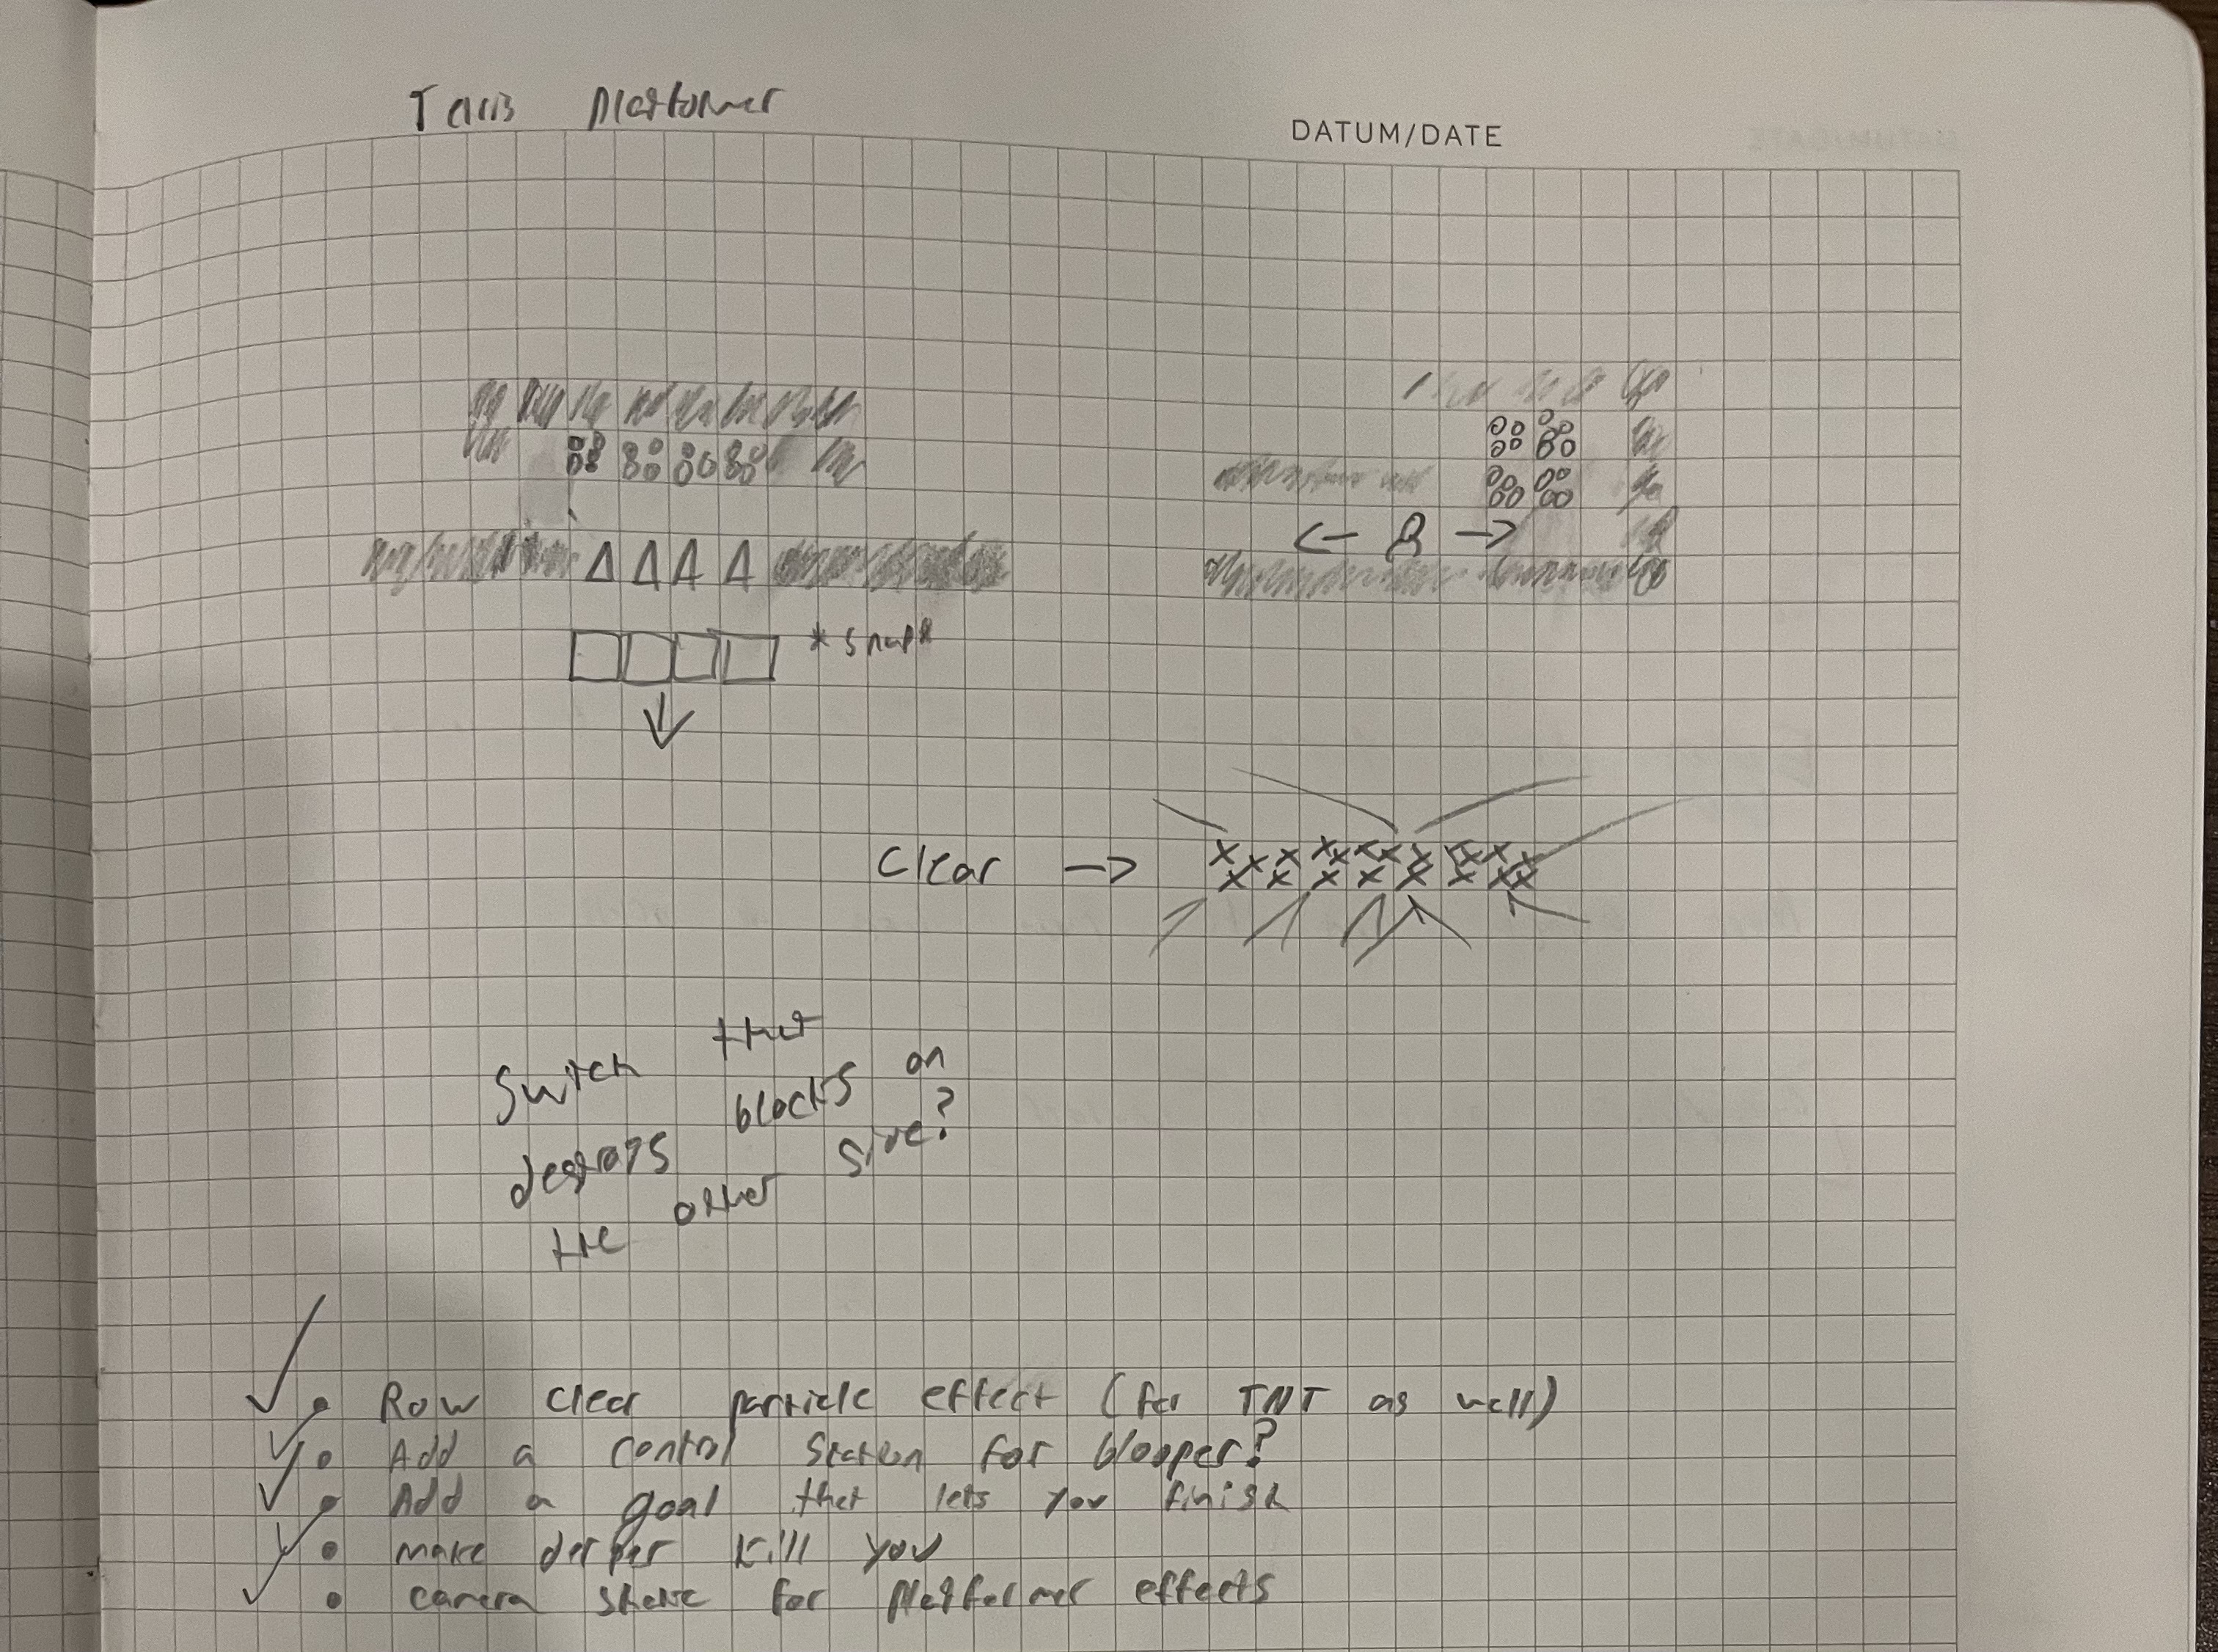 Tetris Platformer
DATUM/DATE
*snap*
Clear →
Switch that
destroys blocks on
the other side?
Row clear particle effect (for TNT as well)
Add a control station for blooper?
Add a goal that lets you finish
make derper kill you
camera shake for platformer effects